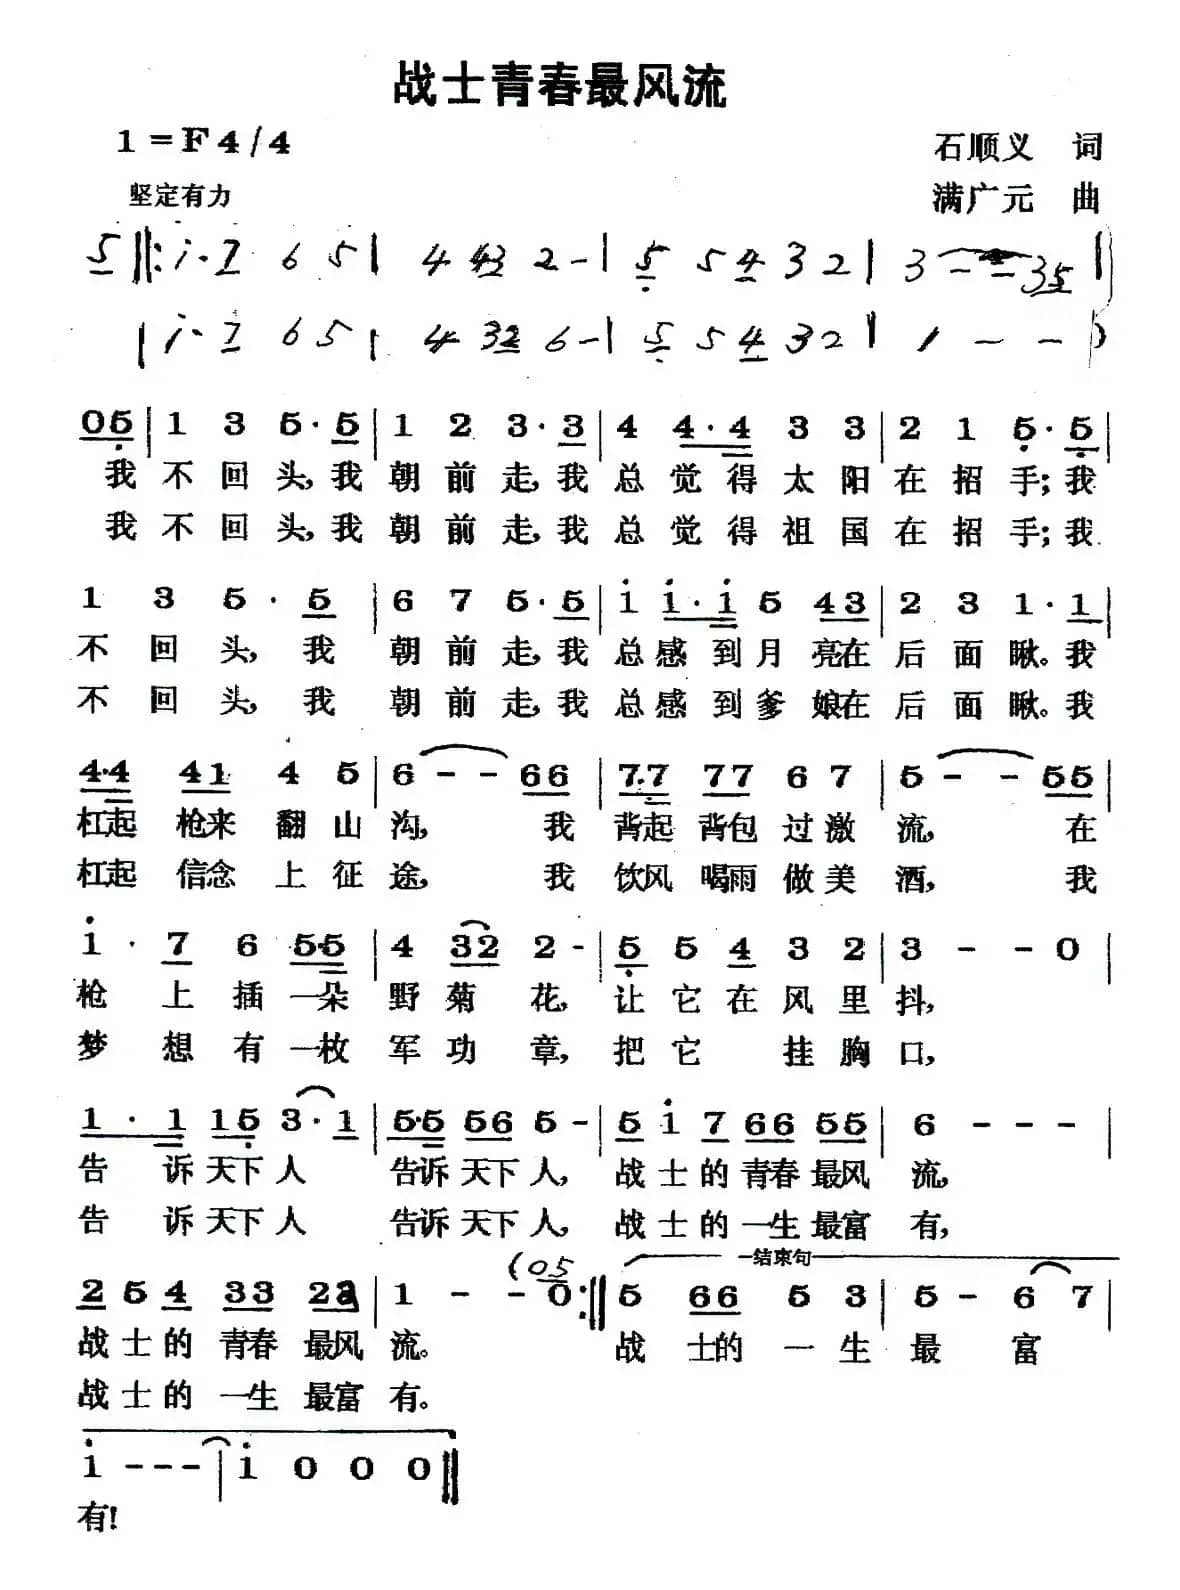 战士青春最风流
1=F 4/4
石顺义 词
坚定有力
满广元 曲
5 ‖: i· 7 6 5 | 4 43 2 - | 5 5 4 3 2 | 3 - - 35 |
| i· 7 6 5 | 4 32 6 - | 5 5 4 3 2 | 1 - - )
05 | 1 3 5· 5 | 1 2 3· 3 | 4 4·4 3 3 | 2 1 5· 5 |
我 不 回 头, 我 朝 前 走, 我 总 觉 得 太 阳 在 招 手; 我
我 不 回 头, 我 朝 前 走, 我 总 觉 得 祖 国 在 招 手; 我
1 3 5· 5 | 6 7 5· 5 | i i·i 5 43 | 2 3 1· 1 |
不 回 头, 我 朝 前 走, 我 总 感 到 月 亮在 后 面 瞅。我
不 回 头, 我 朝 前 走, 我 总 感 到 爹 娘在 后 面 瞅。我
4·4 41 4 5 | 6 - - 66 | 7·7 77 6 7 | 5 - - 55 |
杠起 枪来 翻 山 沟, 我 背起 背包 过 激 流, 在
杠起 信念 上 征 途, 我 饮风 喝雨 做 美 酒, 我
i · 7 6 5·5 | 4 32 2 - | 5 5 4 3 2 | 3 - - 0 |
枪 上 插 一朵 野 菊 花, 让 它 在 风 里 抖,
梦 想 有 一枚 军 功 章, 把 它 挂 胸 口,
1 · 1 15 3· 1 | 5·5 56 5 - | 5 i 7 66 55 | 6 - - - |
告 诉 天下 人 告诉 天下 人, 战 士 的 青春 最风 流,
告 诉 天下 人 告诉 天下 人, 战 士 的 一生 最富 有,
(05 结束句
2 5 4 33 22 | 1 - - 0 :‖ 5 66 5 3 | 5 - 6 7 |
战 士 的 青春 最风 流。 战 士的 一 生 最 富
战 士 的 一生 最富 有。
i - - - | i 0 0 0 ‖
有!